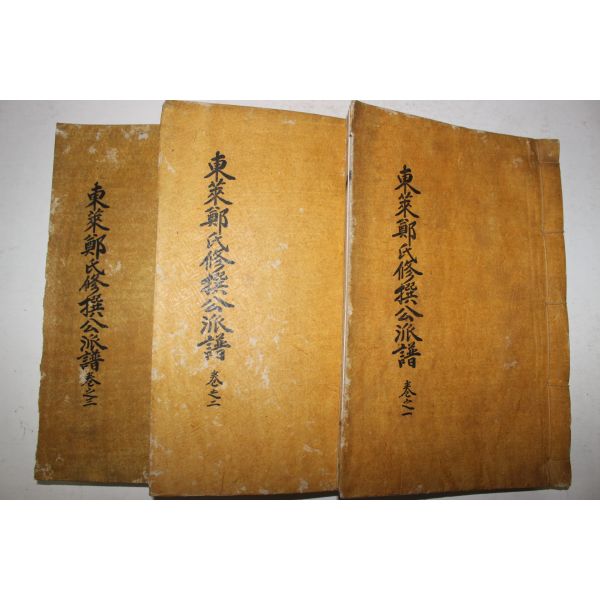 東萊鄭氏修撰公派譜 卷之一
東萊鄭氏修撰公派譜 卷之二
東萊鄭氏修撰公派譜 卷之三